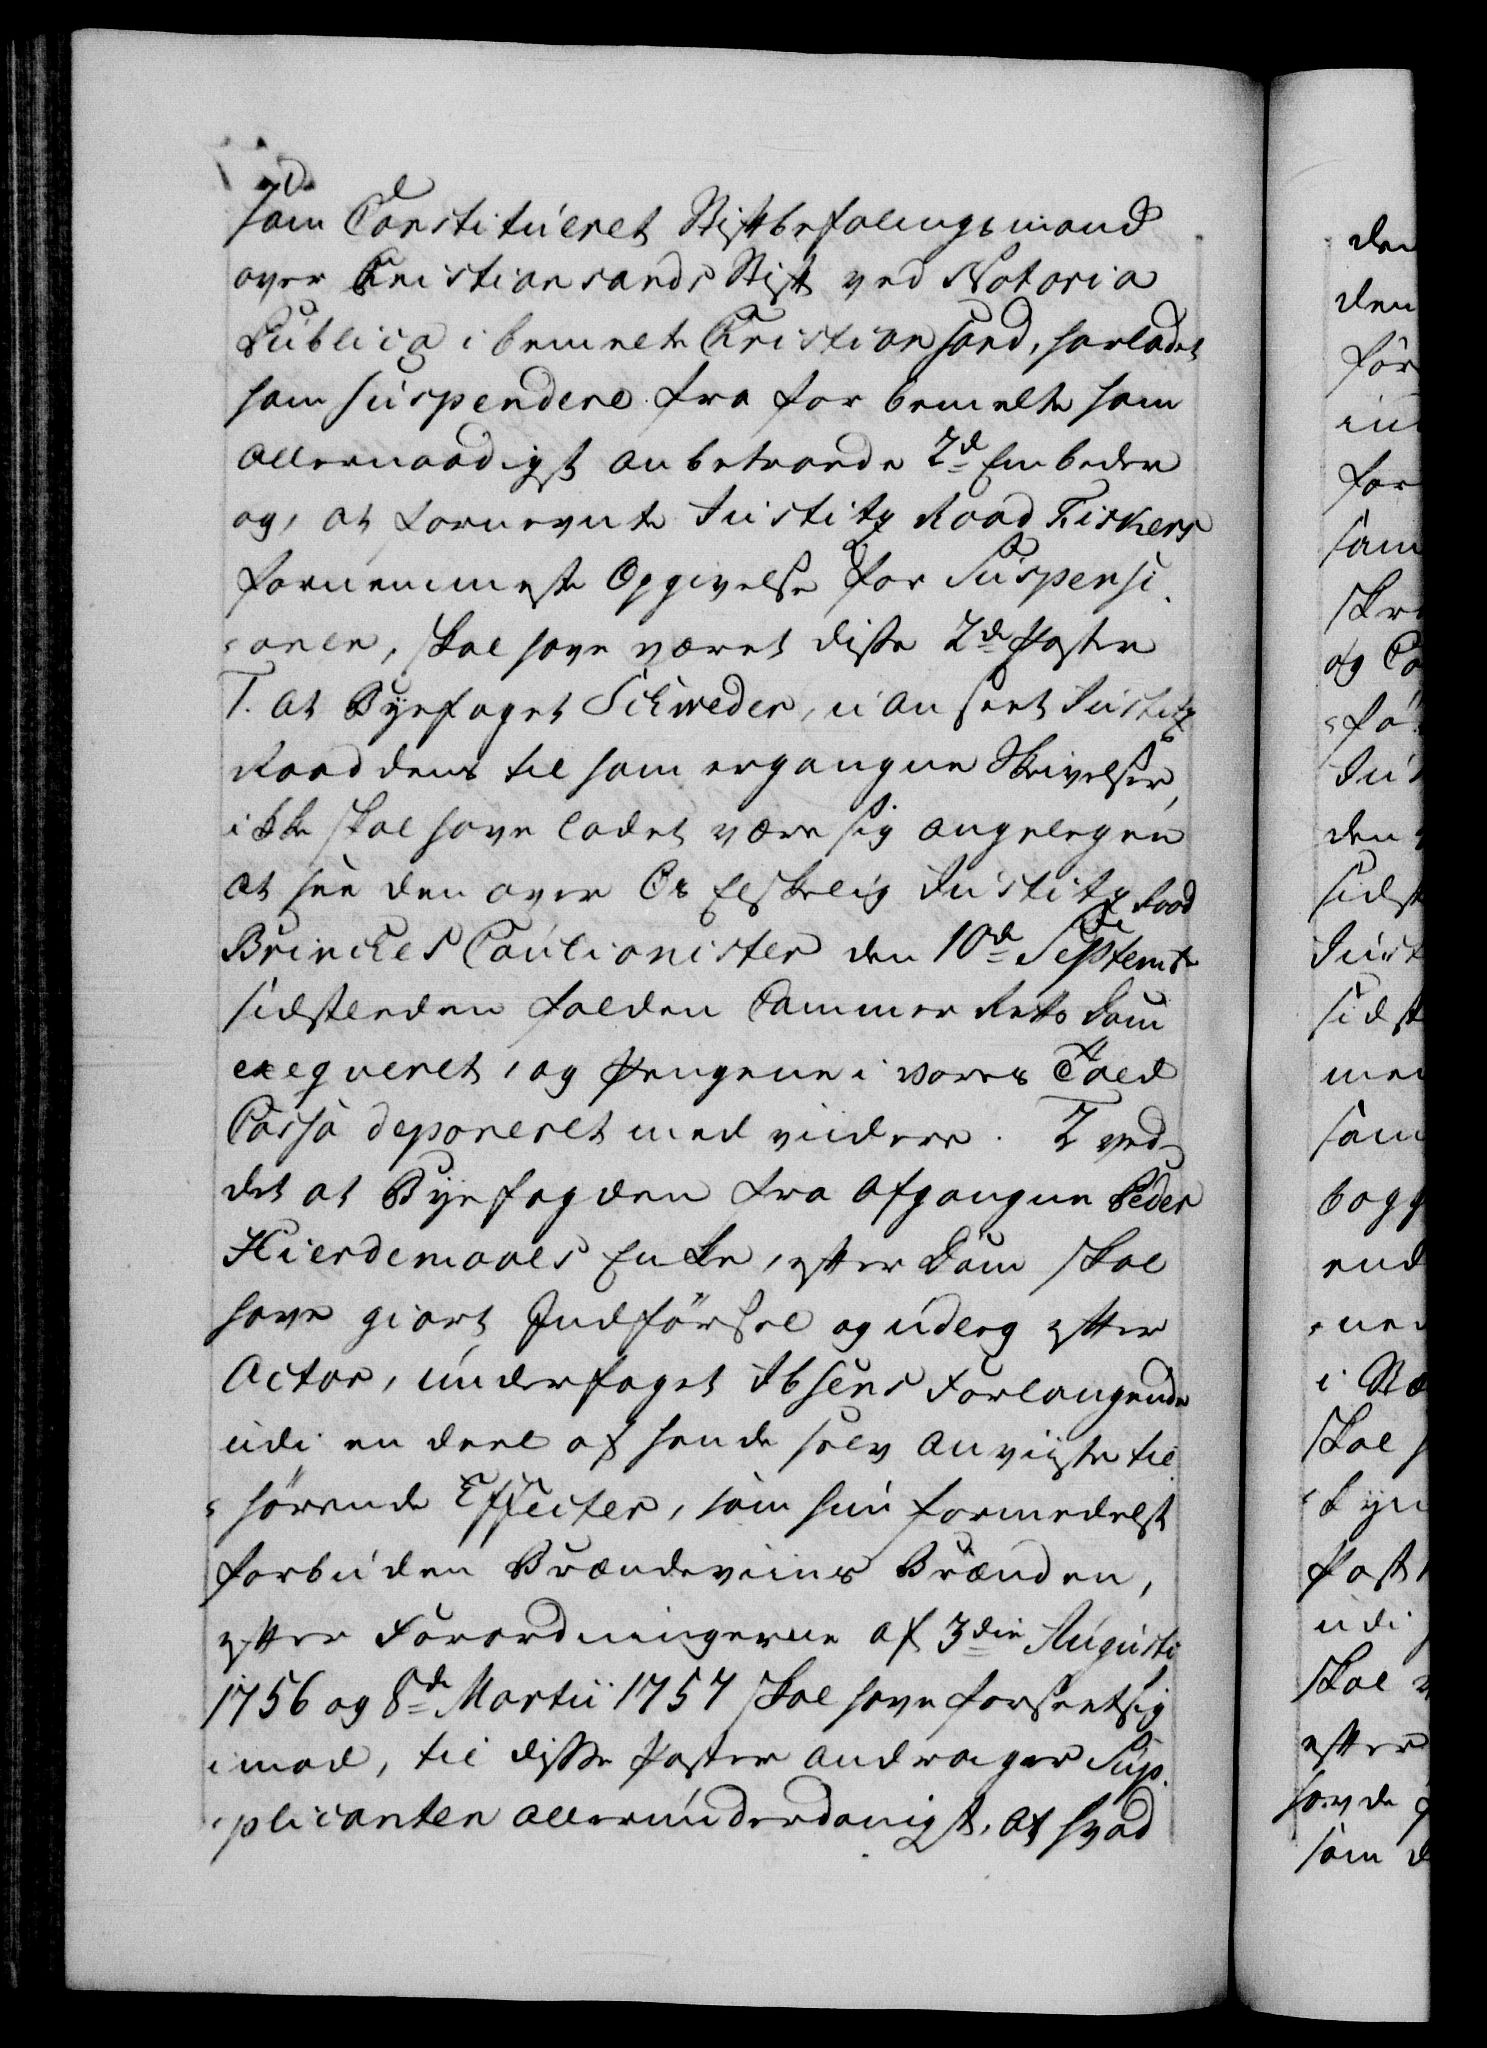 som Constitueret Stiftbefalingsmand
over Christiansands Stift ved Notoria
Publica i bemelte Christiansand, harladet
ham suspendere fra for bemelte ham
allernaadigst anbetroede 2de Embeder
og, at fornevnte Justitz Raad Fiskers
fornemmeste Opgivelse for Suspensi-
-onen, skal have været disse 2de Poster
1. at Byefoget Schweder, uanseet Justitz
Raadens til ham ergangne Skrivelser,
ikke skal have ladet være sig angelegen
at see den over Os Elskelig Justitz Raad
Brinckes Cautionister den 10de Septembr
sidstleden falden Cammer Rets Dom
exeqveret, og Pengene i vores Told
Cassa deponeret med videre. 2 ved
det at Byefogden fra afgangne Peder
Hierdemaals Enke, efter Dom skal
have giort Indførsel og Udlæg efter
Actor, Underfoget Ibsens Forlangende
udi en deel af hende selv anviiste til-
-hørende Effecter, som hun formedelst
forbuden Brændeviins Brænden,
efter Forordningerne af 3die Augusti
1756 og 8de Martii 1757 skal have forseet sig
imod, til disse Poster andrager Sup-
-plicanten allerunderdanigst, at hvad